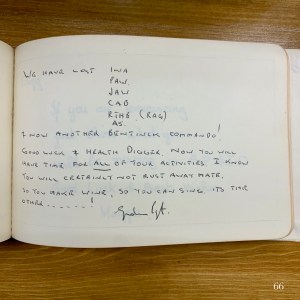 WE HAVE LOST INA
PAW.
JAW
CAB
RING (RAG)
AS.
& NOW ANOTHER BENTINCK COMMANDO!
GOOD LUCK & HEALTH DIGGER. NOW YOU WILL
HAVE TIME FOR ALL OF YOUR ACTIVITIES. I KNOW
YOU WILL CERTAINLY NOT RUST AWAY MATE.
SO YOU MAKER WINE, SO YOU CAN SING, ITS THE
OTHER ......!
66